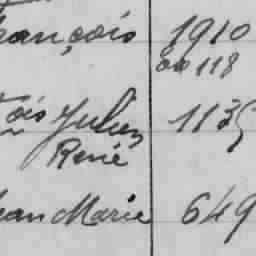 ançois 1910
118
ois Julien 1135
René
ean Marie 649